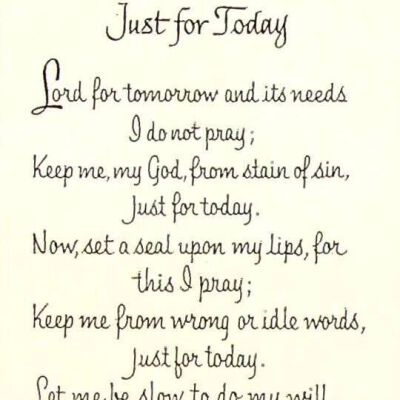 Just for Today
Lord for tomorrow and its needs
I do not pray;
Keep me, my God, from stain of sin,
Just for today.
Now, set a seal upon my lips, for
this I pray;
Keep me from wrong or idle words,
Just for today.
Let me be slow to do my will